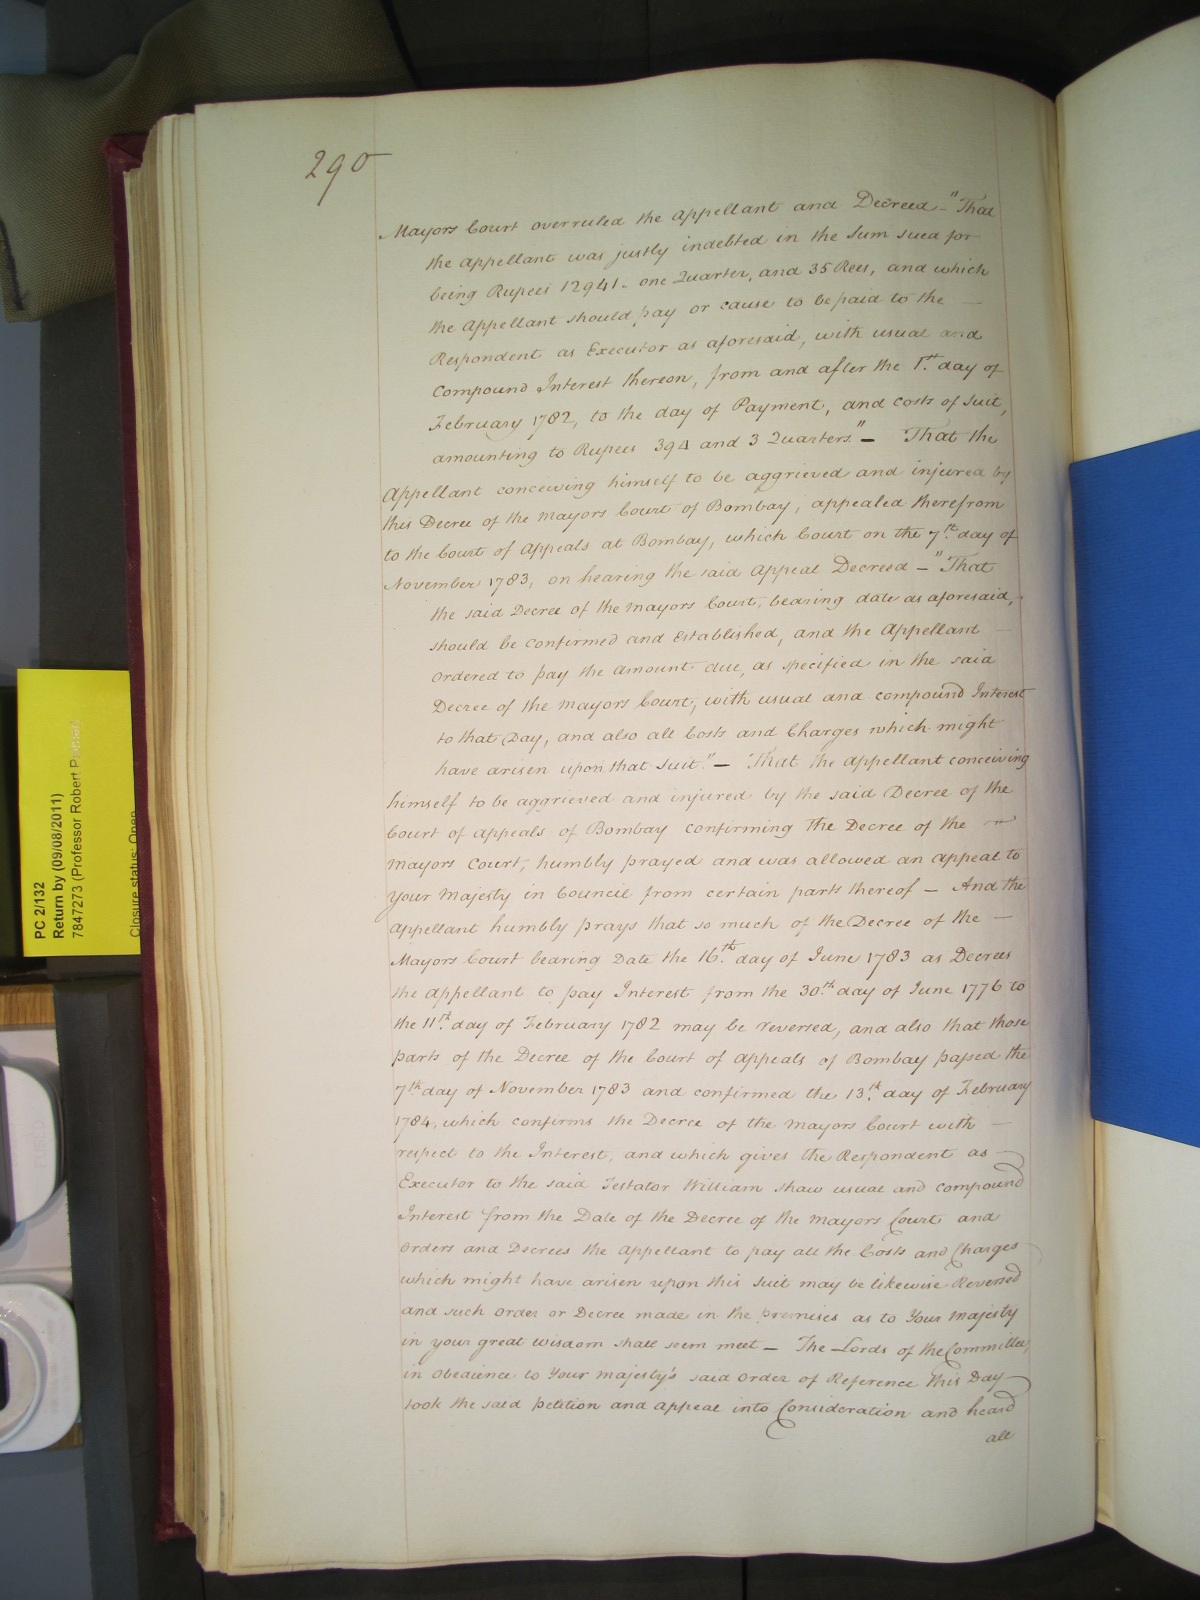 290
Mayors Court overruled the Appellant and Decreed - "That
the Appellant was justly indebted in the Sum sued for
being Rupees 12941 - one Quarter, and 35 Rees, and which
the Appellant should pay or cause to be paid to the —
Respondent as Executor as aforesaid, with usual and
Compound Interest thereon, from and after the 1st. day of
February 1782, to the day of Payment, and Costs of Suit,
amounting to Rupees 394 and 3 Quarters." - That the
Appellant conceiving himself to be aggrieved and injured by
this Decree of the Mayors Court of Bombay, appealed therefrom
to the Court of Appeals at Bombay, which Court on the 7th. day of
November 1783, on hearing the said Appeal Decreed - "That
the said Decree of the Mayors Court, bearing date as aforesaid,
should be confirmed and Established, and the Appellant —
ordered to pay the amount due, as specified in the said
Decree of the Mayors Court, with usual and compound Interest
to that Day, and also all Costs and Charges which might
have arisen upon that Suit." - That the Appellant conceiving
himself to be aggrieved and injured by the said Decree of the
Court of Appeals of Bombay confirming the Decree of the —
Mayors Court, humbly prayed and was allowed an Appeal to
Your Majesty in Council from certain parts thereof - And the
Appellant humbly prays that so much of the Decree of the —
Mayors Court bearing Date the 16th. day of June 1783 as Decrees
the Appellant to pay Interest from the 30th. day of June 1776 to
the 11th. day of February 1782 may be reversed, and also that those
parts of the Decree of the Court of Appeals of Bombay passed the
7th day of November 1783 and confirmed the 13th. day of February
1784, which confirms the Decree of the Mayors Court with —
respect to the Interest, and which gives the Respondent as —
Executor to the said Testator William Shaw usual and compound
Interest from the Date of the Decree of the Mayors Court and
Orders and Decrees the Appellant to pay all the Costs and Charges
which might have arisen upon this Suit may be likewise Reversed
and such Order or Decree made in the premises as to Your Majesty
in your great wisdom shall seem meet - The Lords of the Committee,
in Obedience to Your Majesty's said Order of Reference this Day
took the said Petition and Appeal into Consideration and heard
all
PC 2/132
Return by (09/08/2011)
7847273 (Professor Robert
Closure status: Open